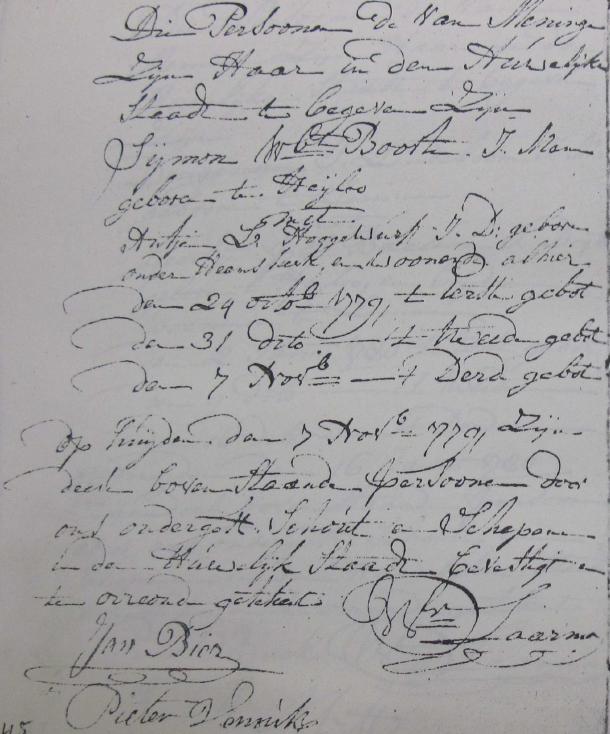 Die Persoonen de van Meninge
Zijn Haar in den Huwelijke
Staadt te begeven Zijn
Sijmon Wbt Booth J. Man
geboren te Heijloo
met
Antje Ls Heggelwurf J. D: geboren
onder Heemskerk, en woonend alhier
den 24 octob 1779, t Eerste gebot
den 31 dito t tweede gebot
den 7 Novb t Derde gebot
op huijden den 7 Novb 1779, Zijn
deese boven Staande persoonen door
ons ondergett. Schout en Schepenen
in den Huwelijk Staadt bevestigt en
ten oirconde getekent
Jan Bien
Pieter
45